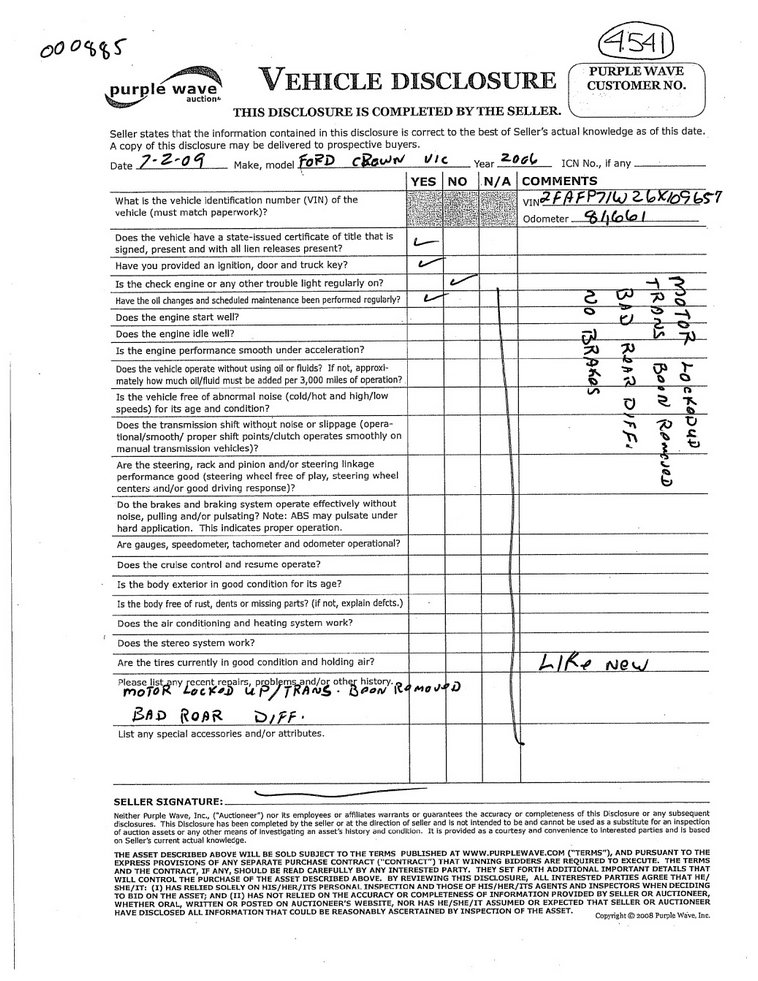 000885
4541
purple wave
auction
VEHICLE DISCLOSURE
PURPLE WAVE
CUSTOMER NO.
THIS DISCLOSURE IS COMPLETED BY THE SELLER.
Seller states that the information contained in this disclosure is correct to the best of Seller's actual knowledge as of this date.
A copy of this disclosure may be delivered to prospective buyers.
Date 7-2-09 Make, model FORD CROWN VIC Year 2006 ICN No., if any
YES NO N/A COMMENTS
What is the vehicle identification number (VIN) of the
vehicle (must match paperwork)?
VIN 2FAFP71W26X109657
Odometer 81,661
Does the vehicle have a state-issued certificate of title that is
signed, present and with all lien releases present?
Have you provided an ignition, door and truck key?
Is the check engine or any other trouble light regularly on?
Have the oil changes and scheduled maintenance been performed regularly?
Does the engine start well?
Does the engine idle well?
Is the engine performance smooth under acceleration?
Does the vehicle operate without using oil or fluids? If not, approxi-
mately how much oil/fluid must be added per 3,000 miles of operation?
Is the vehicle free of abnormal noise (cold/hot and high/low
speeds) for its age and condition?
Does the transmission shift without noise or slippage (opera-
tional/smooth/ proper shift points/clutch operates smoothly on
manual transmission vehicles)?
Are the steering, rack and pinion and/or steering linkage
performance good (steering wheel free of play, steering wheel
centers and/or good driving response)?
Do the brakes and braking system operate effectively without
noise, pulling and/or pulsating? Note: ABS may pulsate under
hard application. This indicates proper operation.
Are gauges, speedometer, tachometer and odometer operational?
Does the cruise control and resume operate?
Is the body exterior in good condition for its age?
Is the body free of rust, dents or missing parts? (if not, explain defcts.)
Does the air conditioning and heating system work?
Does the stereo system work?
Are the tires currently in good condition and holding air?
MOTOR LOCKODUP
TRANS BOON REMOVED
BAD ROAR DIFF.
NO BRAKOS
LIKE NEW
Please list any recent repairs, problems and/or other history.
MOTOR LOCKED UP/TRANS. BOON REMOVED
BAD ROAR DIFF.
List any special accessories and/or attributes.
SELLER SIGNATURE:
Neither Purple Wave, Inc., ("Auctioneer") nor its employees or affiliates warrants or guarantees the accuracy or completeness of this Disclosure or any subsequent
disclosures. This Disclosure has been completed by the seller or at the direction of seller and is not intended to be and cannot be used as a substitute for an inspection
of auction assets or any other means of investigating an asset's history and condition. It is provided as a courtesy and convenience to interested parties and is based
on Seller's current actual knowledge.
THE ASSET DESCRIBED ABOVE WILL BE SOLD SUBJECT TO THE TERMS PUBLISHED AT WWW.PURPLEWAVE.COM ("TERMS"), AND PURSUANT TO THE
EXPRESS PROVISIONS OF ANY SEPARATE PURCHASE CONTRACT ("CONTRACT") THAT WINNING BIDDERS ARE REQUIRED TO EXECUTE. THE TERMS
AND THE CONTRACT, IF ANY, SHOULD BE READ CAREFULLY BY ANY INTERESTED PARTY. THEY SET FORTH ADDITIONAL IMPORTANT DETAILS THAT
WILL CONTROL THE PURCHASE OF THE ASSET DESCRIBED ABOVE. BY REVIEWING THIS DISCLOSURE, ALL INTERESTED PARTIES AGREE THAT HE/
SHE/IT: (I) HAS RELIED SOLELY ON HIS/HER/ITS PERSONAL INSPECTION AND THOSE OF HIS/HER/ITS AGENTS AND INSPECTORS WHEN DECIDING
TO BID ON THE ASSET; AND (II) HAS NOT RELIED ON THE ACCURACY OR COMPLETENESS OF INFORMATION PROVIDED BY SELLER OR AUCTIONEER,
WHETHER ORAL, WRITTEN OR POSTED ON AUCTIONEER'S WEBSITE, NOR HAS HE/SHE/IT ASSUMED OR EXPECTED THAT SELLER OR AUCTIONEER
HAVE DISCLOSED ALL INFORMATION THAT COULD BE REASONABLY ASCERTAINED BY INSPECTION OF THE ASSET.
Copyright © 2008 Purple Wave, Inc.